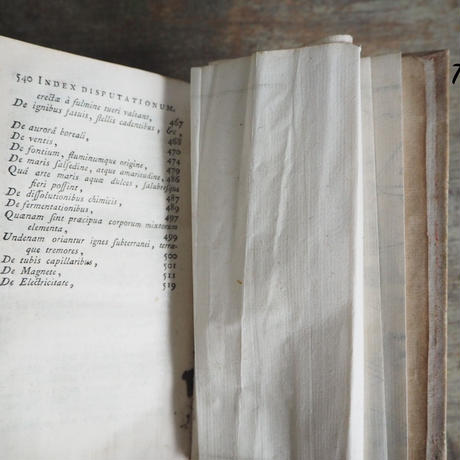 540 INDEX DISPUTATIONUM.
erectæ à fulmine tueri valeant, 467
De ignibus fatuis, ſtellis cadentibus, &c,
De aurorâ boreali, 468
De ventis, 470
De fontium, fluminumque origine, 474
De maris ſalſedine, atque amaritudine, 479
Quâ arte maris aqua dulces, ſalubreſque 486
fieri poſſint, 487
De diſſolutionibus chimicis, 489
De fermentationibus, 497
Quænam ſint præcipua corporum mixtorum
elementa, 499
Undenam oriantur ignes ſubterranei, terræ-
que tremores, 500
De tubis capillaribus, 501
De Magnete, 511
De Electricitate, 519